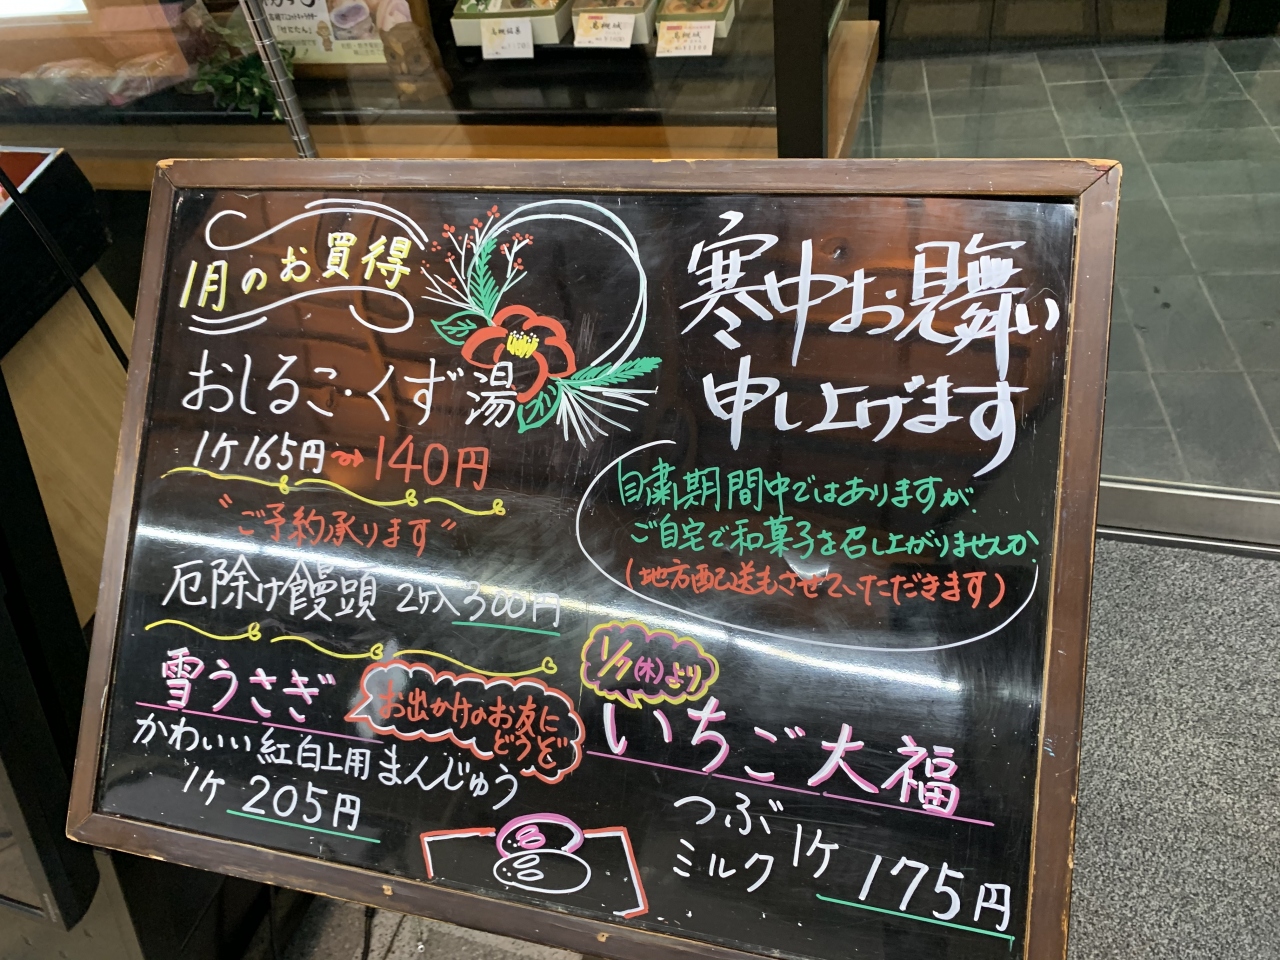 寒中お見舞い
申し上げます
自粛期間中ではありますが、
ご自宅で和菓子を召し上がりませんか
(地方配送もさせていただきます)
1月のお買得
おしるこ・くず湯
1ケ165円→140円
"ご予約承ります"
厄除け饅頭 2ケ入300円
雪うさぎ
お出かけのお友に
どうぞ
かわいい紅白上用まんじゅう
1ケ 205円
1/7(木)より
いちご大福
つぶ
ミルク
1ケ 175円